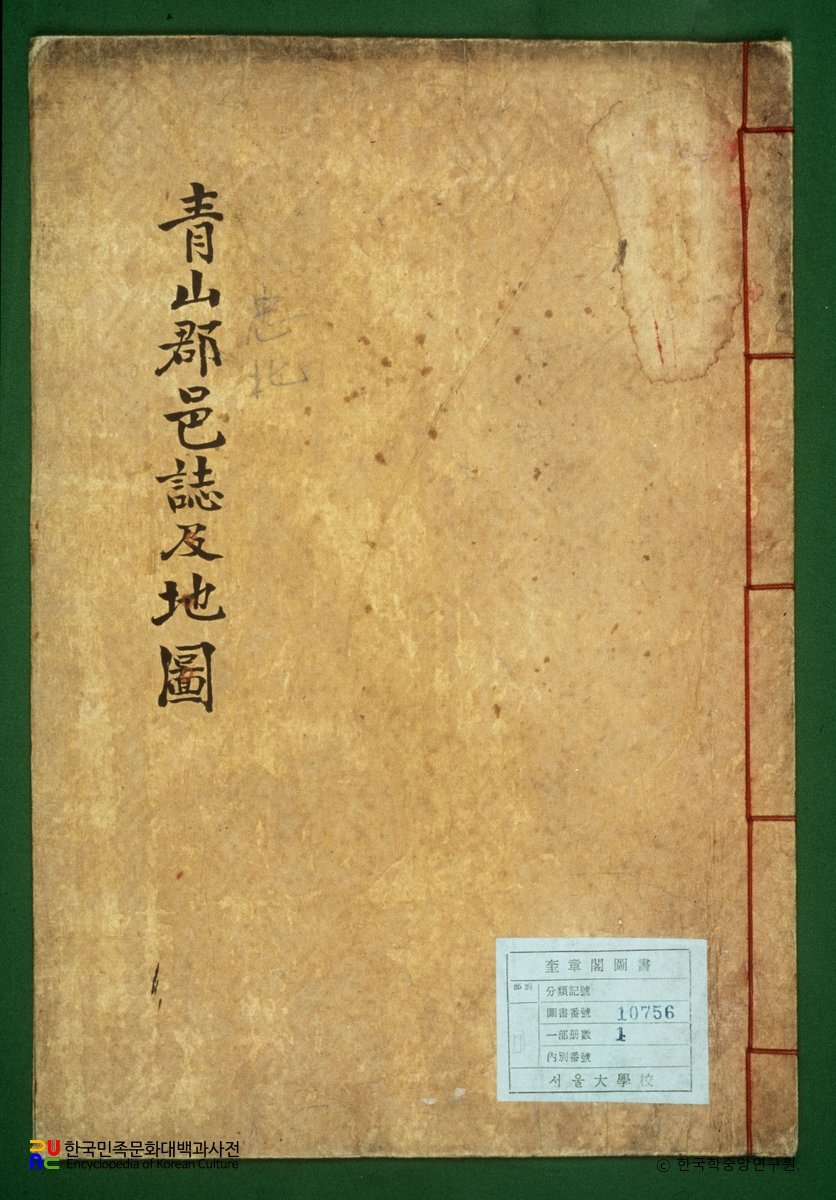 青山郡邑誌及地圖
忠北
奎章閣圖書
部別
分類記號
圖書番號 10756
一部册數 1
內別番號
서울大學校
한국민족문화대백과사전
Encyclopedia of Korean Culture
ⓒ 한국학중앙연구원.